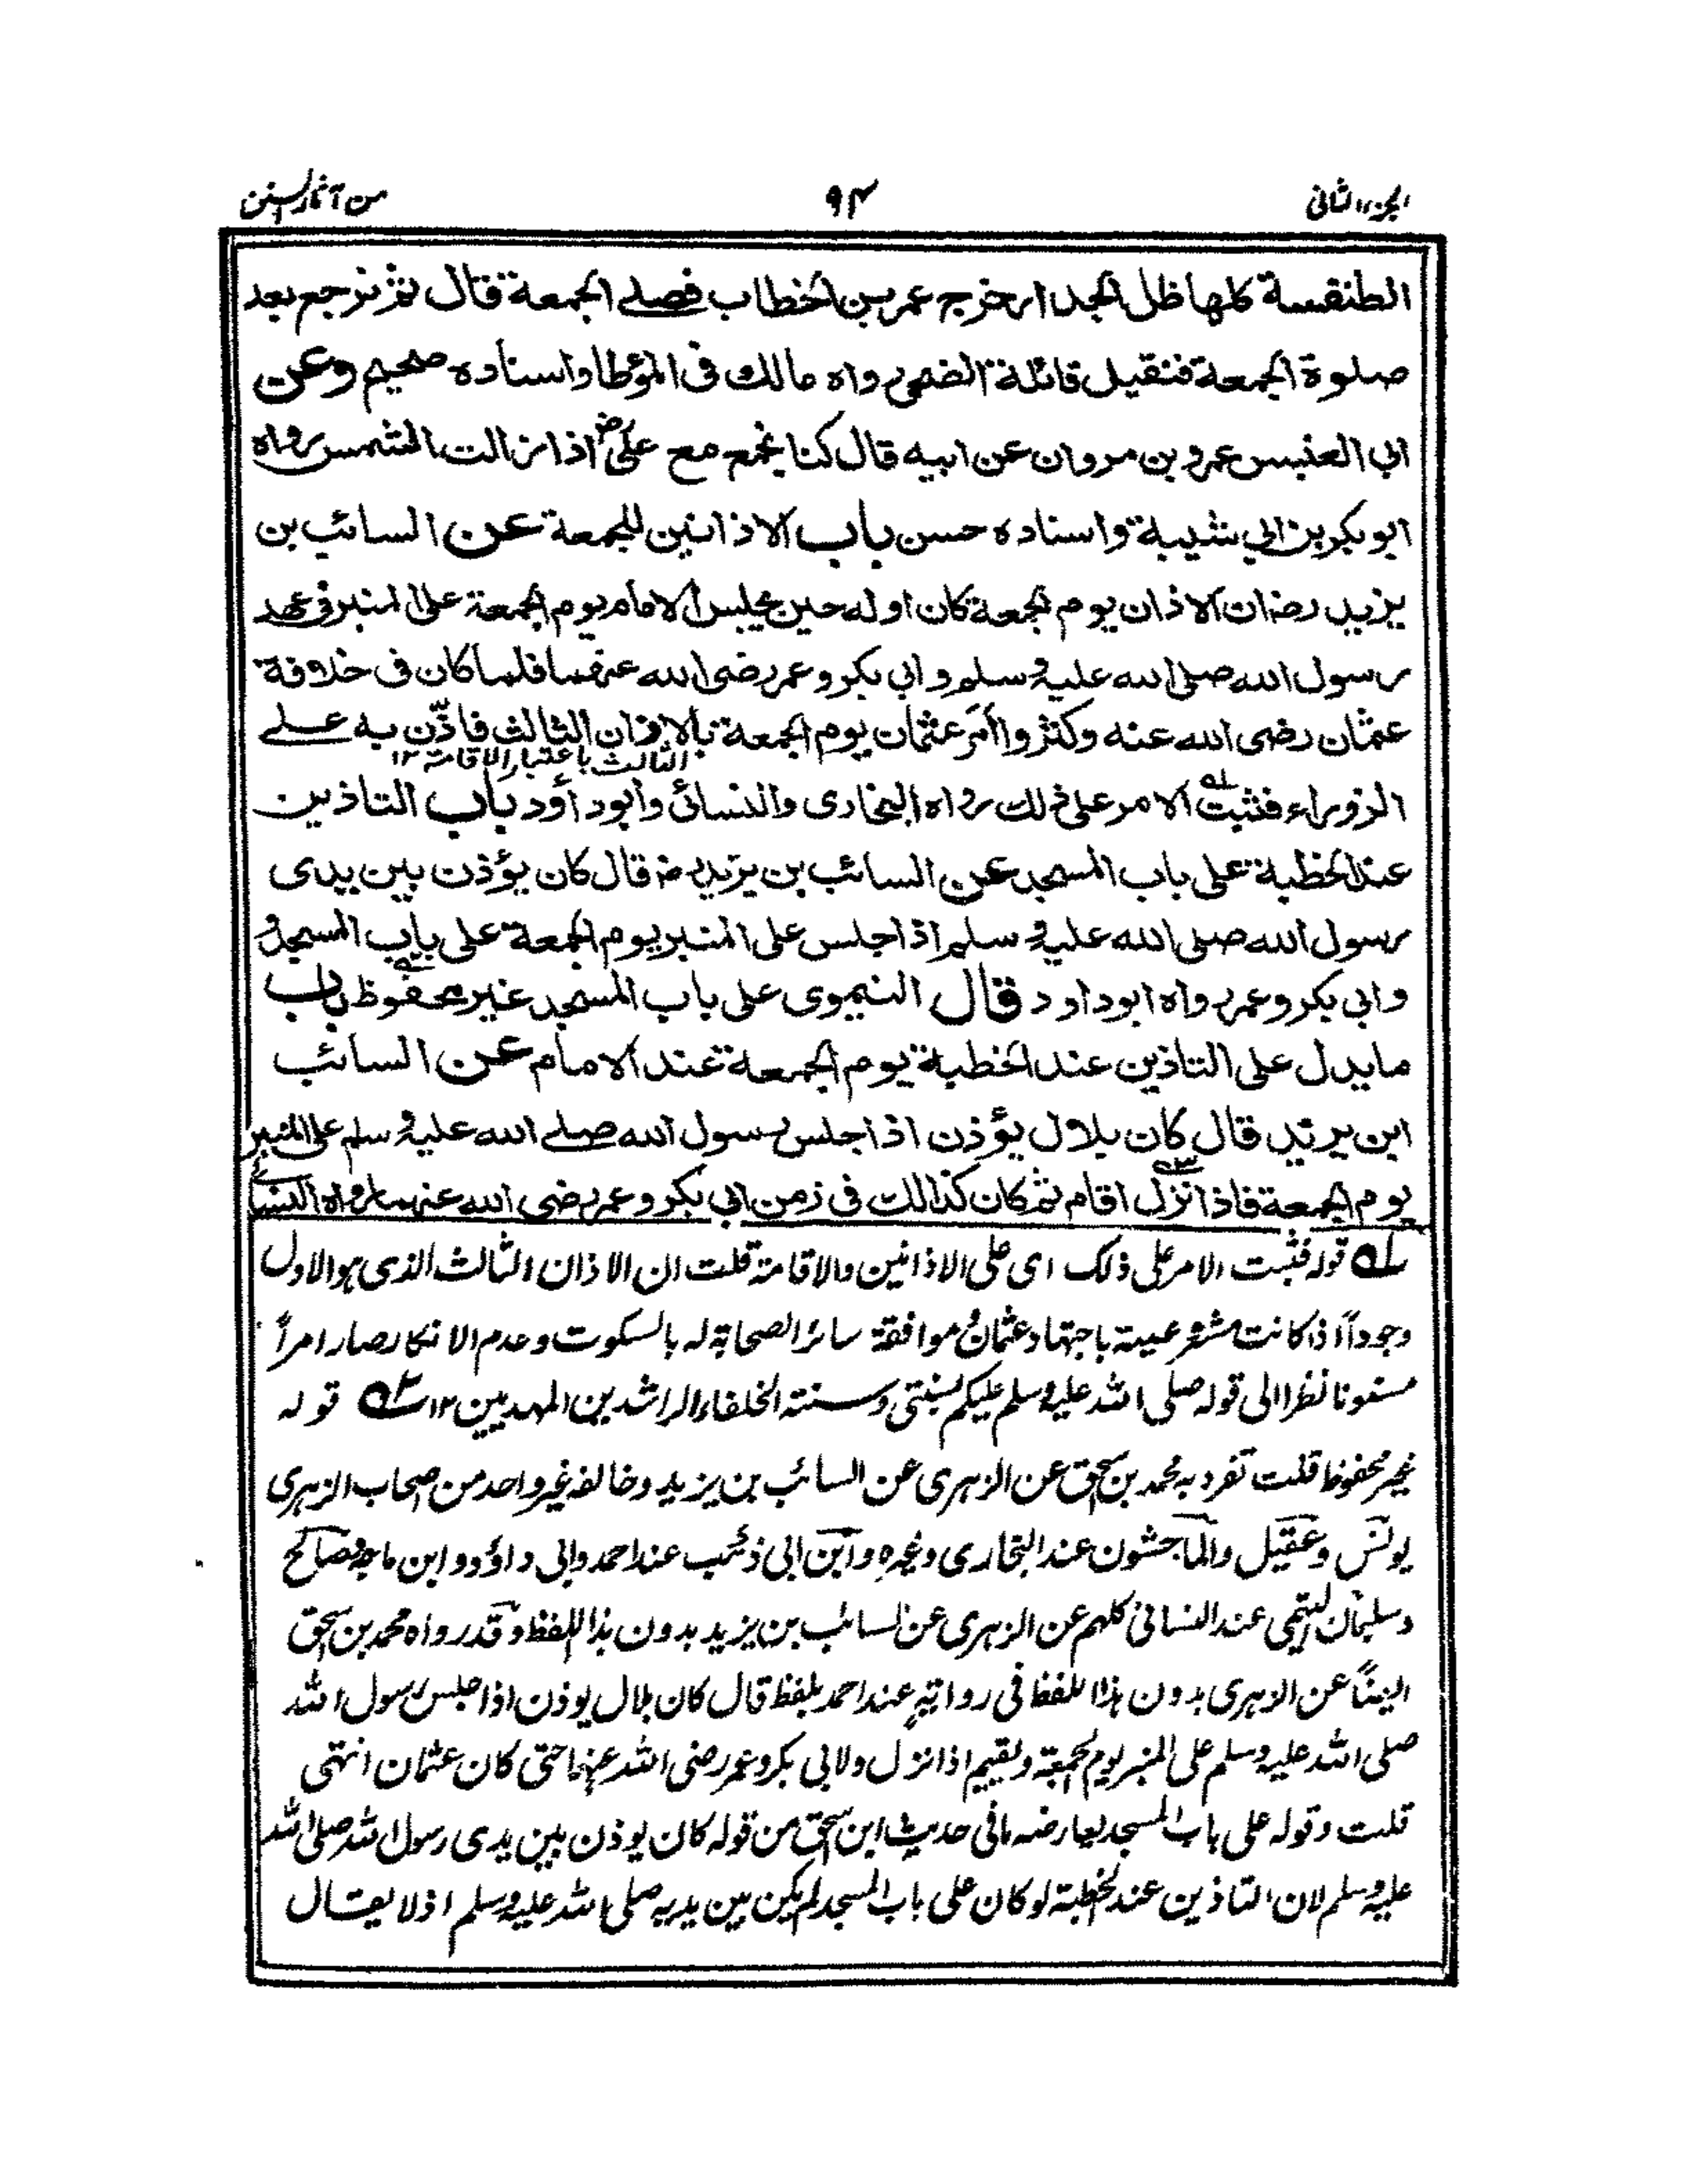 الجزء الثانى
٩٤
من آثار السنن
الطنفسة كلها ظل الجدار خرج عمر بن الخطاب فصلے الجمعة قال ثم نرجع بعد
صلوة الجمعة فنقيل قائلة الضحى رواه مالك فى المؤطا واسناده صحيح وعن
ابي العنبس عمرو بن مروان عن ابيه قال كنا نجمع مع على رض اذا زالت الشمس رواه
ابو بكر بن ابي شيبة واسناده حسن باب الاذانين للجمعة عن السائب بن
يزيد رض ان الاذان يوم الجمعة كان اوله حين يجلس الامام يوم الجمعة على المنبر فى عهد
رسول الله صلى الله عليه وسلم وابي بكر وعمر رضى الله عنهما فلما كان فى خلافة
عثمان رضى الله عنه وكثروا أمر عثمان يوم الجمعة بالاذان الثالث فاذّن به علے
الثالث باعتبار الاقامة ١٢
الزوراء فثبت له الامر على ذلك رواه البخارى والنسائى وابوداؤد باب التاذين
عند الخطبة على باب المسجد عن السائب بن يزيد رض قال كان يؤذن بين يدى
رسول الله صلى الله عليه وسلم اذا جلس على المنبر يوم الجمعة على باب المسجد و
وابي بكر وعمر رواه ابوداود قال النيموى على باب المسجد غير محفوظ باب
مايدل على التاذين عند الخطبة يوم الجمعة عند الامام عن السائب
ابن يزيد قال كان بلال يؤذن اذا جلس رسول الله صلے الله عليه وسلم على المنبر
يوم الجمعة فاذا نزل اقام ثم كان كذالك فى زمن ابي بكر وعمر رضى الله عنهما رواه النسائے
له قوله فثبت الامر على ذلك اى على الاذانين والاقامة قلت ان الاذان الثالث الذى هو الاول
وجوداً اذا كانت مشروعيته باجتهاد عثمان وموافقة سائر الصحابة له بالسكوت وعدم الانكار صار امراً
مسنونا نظرا الى قوله صلى الله عليه وسلم عليكم بسنتى وسنة الخلفاء الراشدين المهديين ١٢ ٢ه قوله
غير محفوظ قلت تفرد به محمد بن اسحق عن الزهرى عن السائب بن يزيد وخالفه غير واحد من اصحاب الزهرى
يونس وعقيل والماجشون عند البخارى وغيره وابن ابى ذئب عند احمد وابى داؤد وابن ماجه وصالح
وسليمان التيمى عند النسائى كلهم عن الزهرى عن السائب بن يزيد بدون هذا اللفظ وقد رواه محمد بن اسحق
ايضاً عن الزهرى بدون هذا اللفظ فى رواية عند احمد بلفظ قال كان بلال يوذن اذا جلس رسول الله
صلى الله عليه وسلم على المنبر يوم الجمعة ويقيم اذا نزل ولابى بكر وعمر رضى الله عنهما حتى كان عثمان انتهى
قلت وقوله على باب المسجد يعارضه مافى حديث ابن اسحق من قوله كان يوذن بين يدى رسول الله صلى الله
عليه وسلم لان التاذين عند الخطبة لو كان على باب المسجد لم يكن بين يديه صلى الله عليه وسلم اذ لا يقال